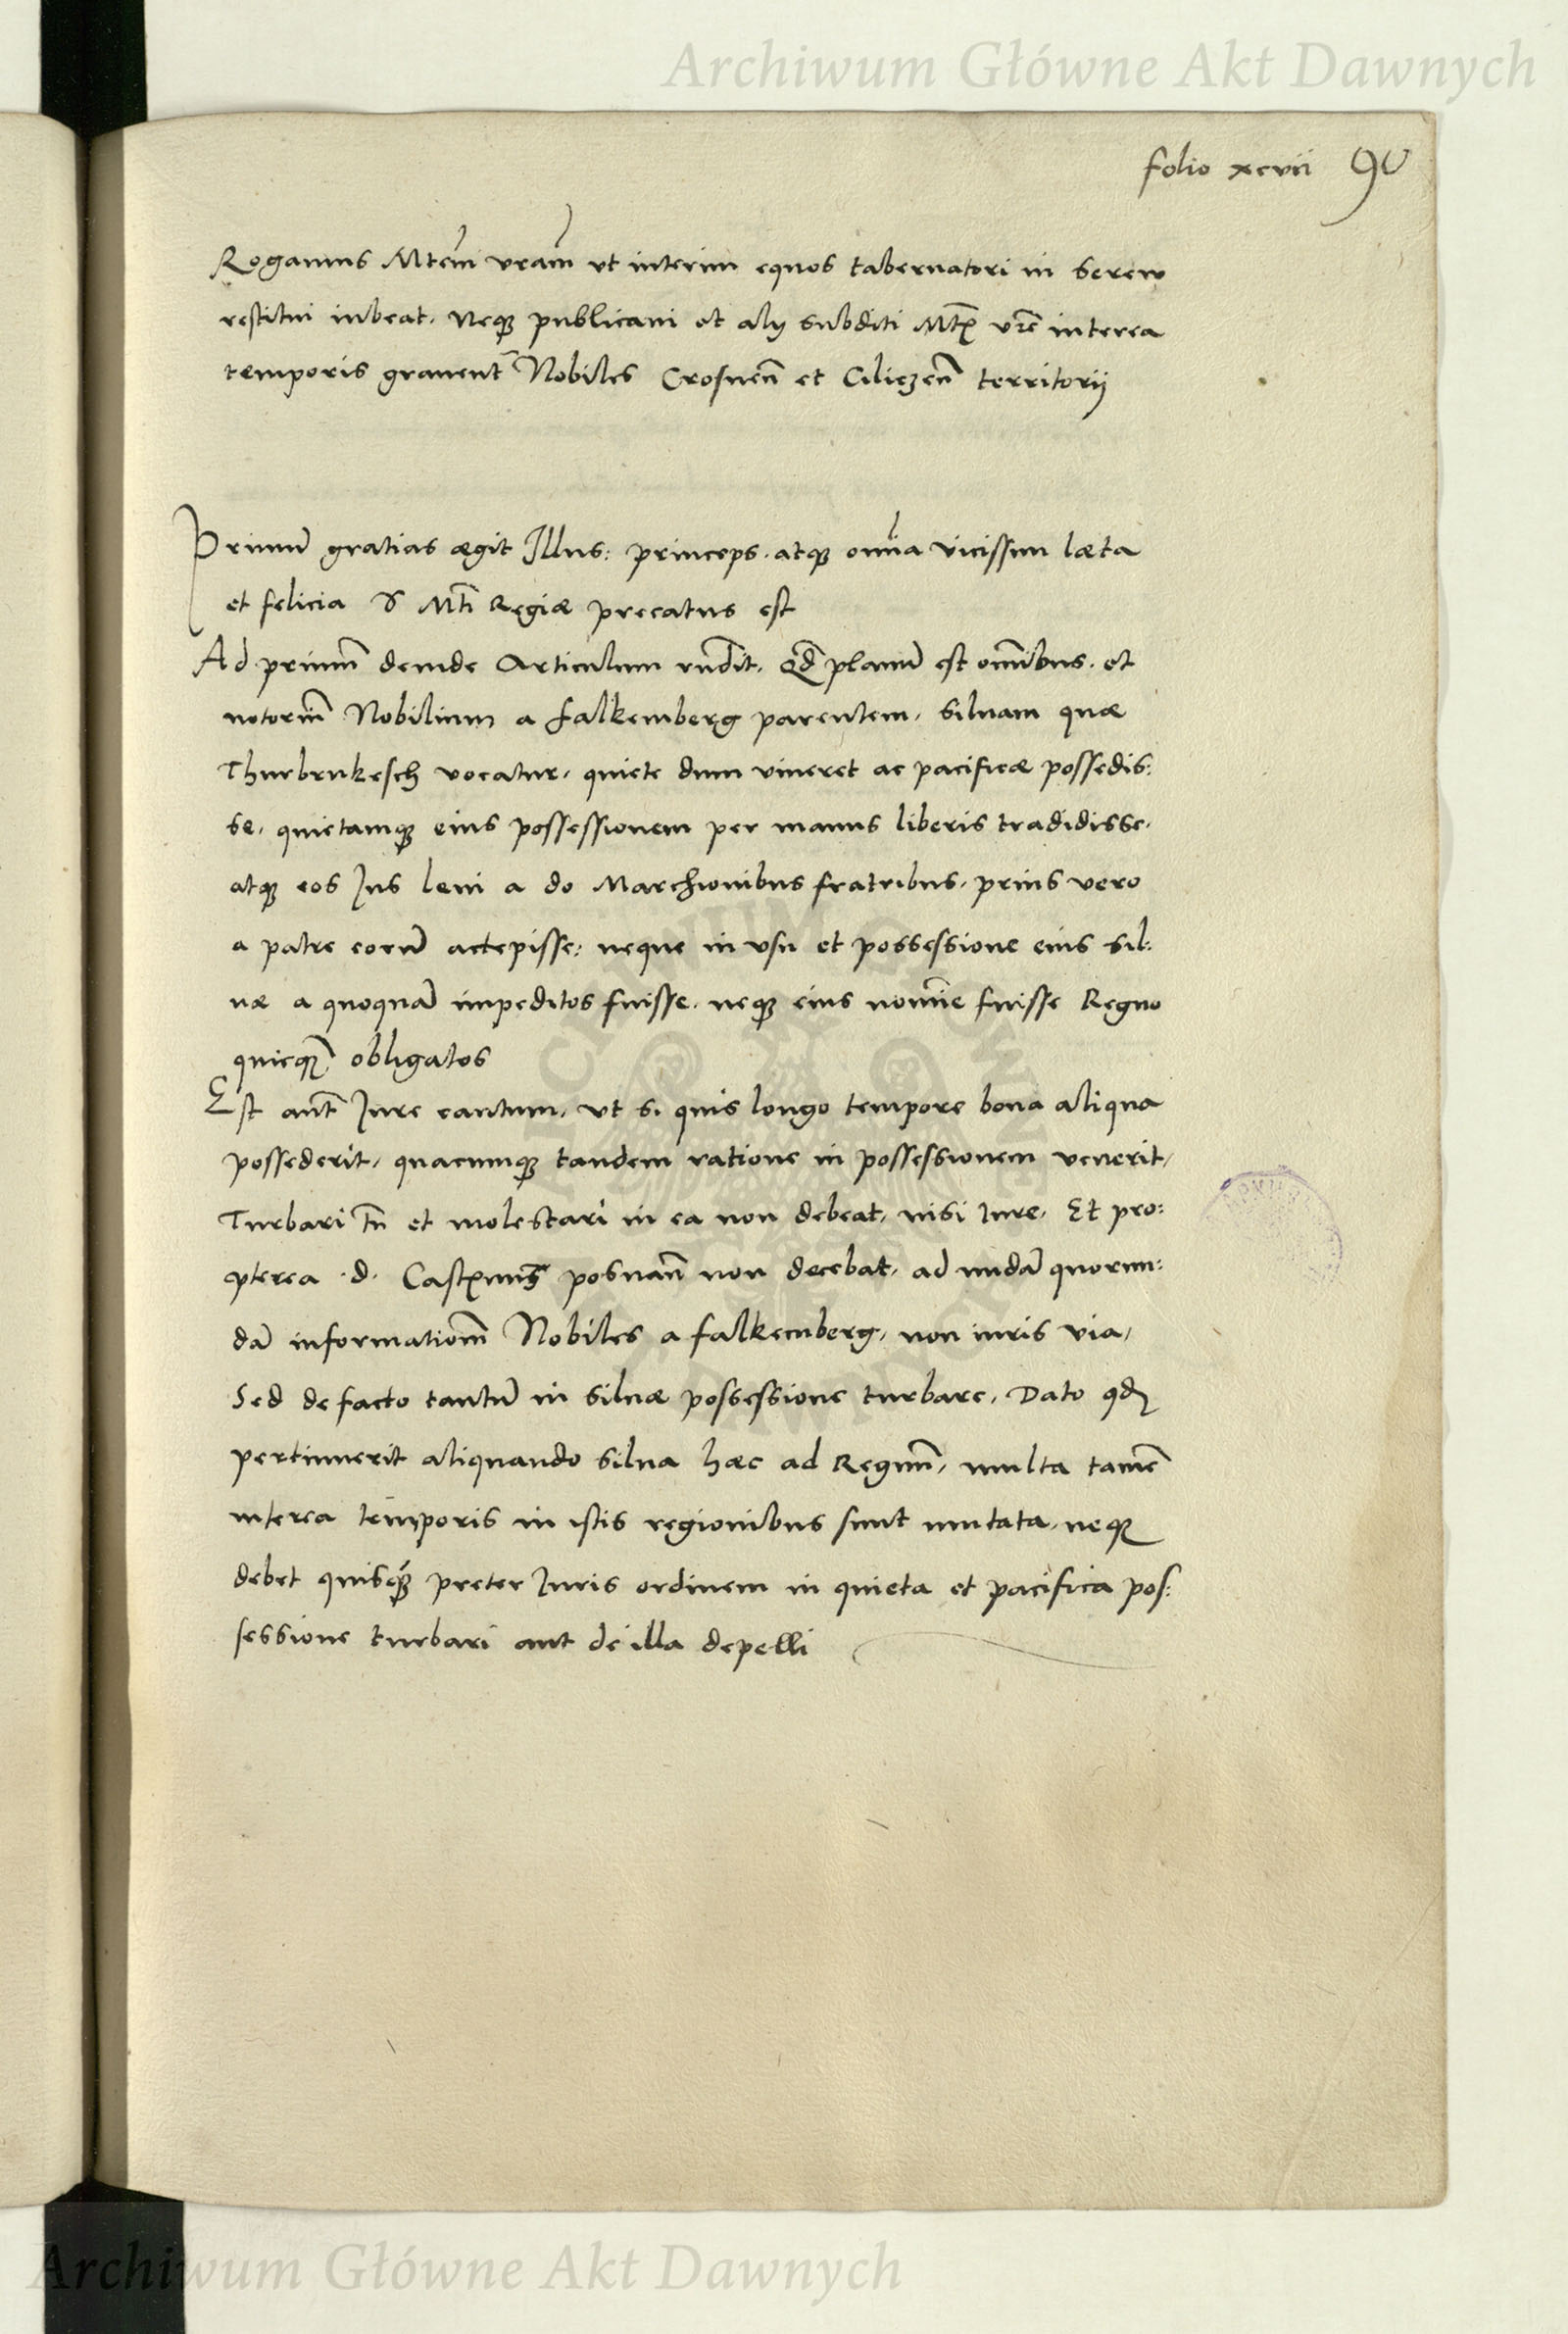 Archiwum Główne Akt Dawnych
folio xcvii 90
Rogamus Mtem̄ vram̄ vt interim equos tabernatori in Serew
restitui iubeat. Neqꝫ publicani et alij subditi Mtꝭ vrē interea
temporis grauent᷑ Nobiles Crosnen̄ et Ciliczen̄ territorij
Primū gratias ægit Illus: princeps. atqꝫ omīa vicissim læta
et felicia Mti Regiæ precatus est
Ad primm̄ deinde Articulum rn̄dit. Qd̄ planū est omībus. et
notoriū Nobilium a falkemberg parentem, siluam quæ
Thurbrukesch vocatur, quiete dum viueret ac pacificæ possedis:
se, quietamqꝫ eius possessionem per manus liberis tradidisse.
atqꝫ eos Jus leni a do Marchionibus fratribus. prius vero
a patre eorū accepisse: neque in vsu et possessione eius sil:
uæ a quoquā impeditos fuisse. neqꝫ eius nomīe fuisse Regno
quicqꝫ̄ obligatos
Est aut̄ Jure cautum, vt si quis longo tempore bona aliqua
possederit, quacumqꝫ tandem ratione in possessionem venerit,
Turbari tn̄ et molestari in ea non debeat, nisi Jure. Et pro:
pterea .d. Castꝝnus posnan̄ non decebat, ad nudā quorun:
dā informatiom̄ Nobiles a falkemberg, non iuris via,
Sed de facto tantū in siluæ possessione turbare. Dato qd
pertinuerit aliquando silua hæc ad Regnū, multa tamē
interea temporis in istis regionibus sunt mutata. neqꝫ
debet quisqꝫ̄ preter Juris ordinem in quieta et pacifica pos:
sessione turbari aut de illa depelli
Archiwum Główne Akt Dawnych